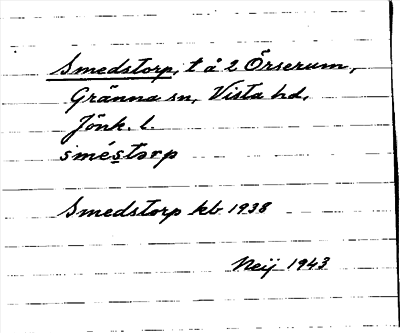 Smedstorp, t å 2 Örserum,
Gränna sn, Vista hd,
Jönk. l.
sméstorp
Smedstorp kb 1938
Neij 1943